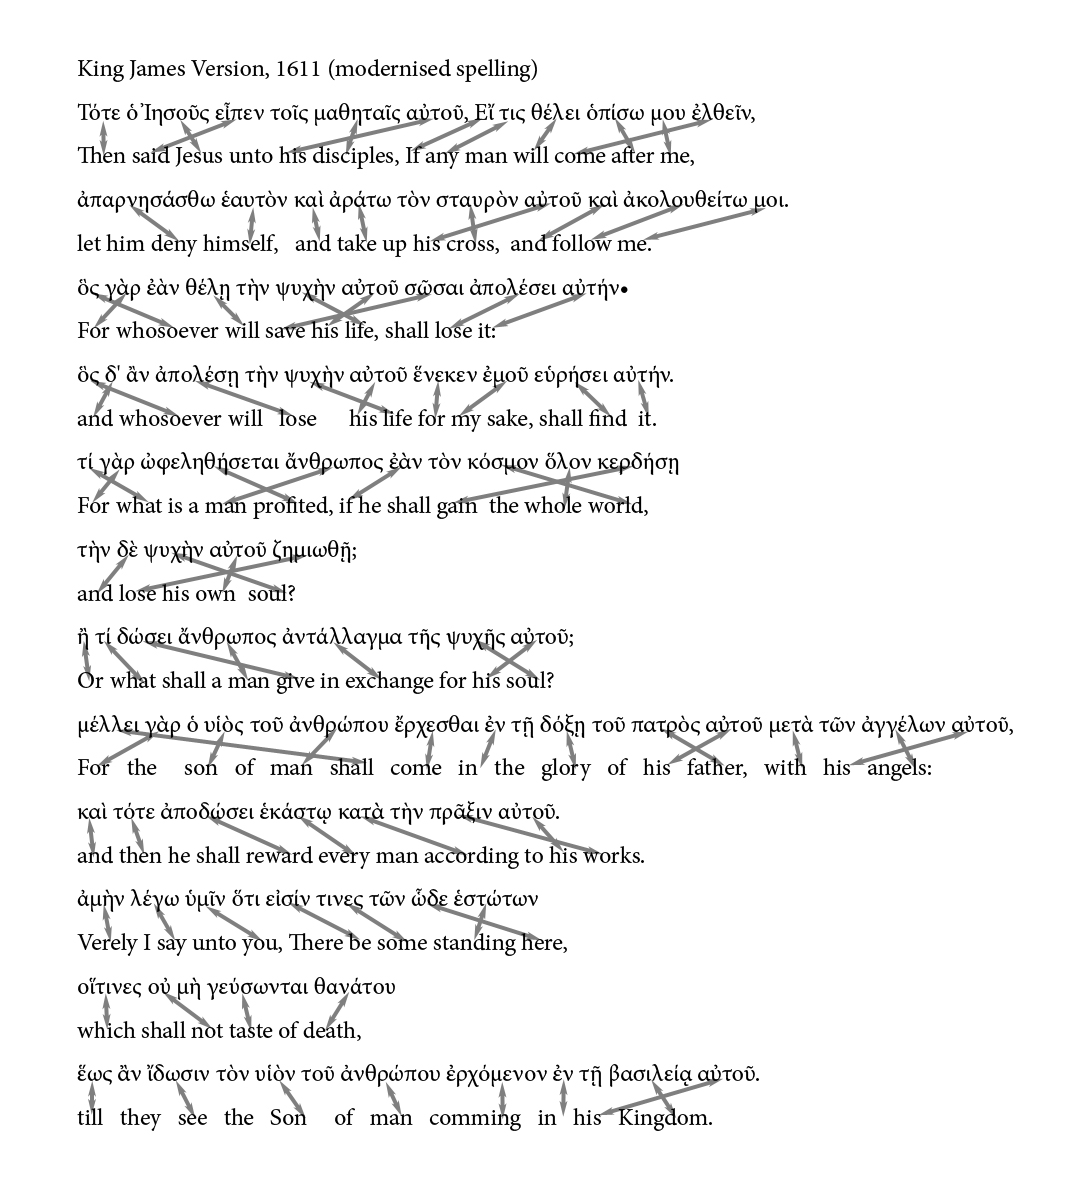 King James Version, 1611 (modernised spelling)
Τότε ὁ Ἰησοῦς εἶπεν τοῖς μαθηταῖς αὐτοῦ, Εἴ τις θέλει ὀπίσω μου ἐλθεῖν,
Then said Jesus unto his disciples, If any man will come after me,
ἀπαρνησάσθω ἑαυτὸν καὶ ἀράτω τὸν σταυρὸν αὐτοῦ καὶ ἀκολουθείτω μοι.
let him deny himself, and take up his cross, and follow me.
ὃς γὰρ ἐὰν θέλῃ τὴν ψυχὴν αὐτοῦ σῶσαι ἀπολέσει αὐτήν•
For whosoever will save his life, shall lose it:
ὃς δ' ἂν ἀπολέσῃ τὴν ψυχὴν αὐτοῦ ἕνεκεν ἐμοῦ εὑρήσει αὐτήν.
and whosoever will lose his life for my sake, shall find it.
τί γὰρ ὠφεληθήσεται ἄνθρωπος ἐὰν τὸν κόσμον ὅλον κερδήσῃ
For what is a man profited, if he shall gain the whole world,
τὴν δὲ ψυχὴν αὐτοῦ ζημιωθῇ;
and lose his own soul?
ἢ τί δώσει ἄνθρωπος ἀντάλλαγμα τῆς ψυχῆς αὐτοῦ;
Or what shall a man give in exchange for his soul?
μέλλει γὰρ ὁ υἱὸς τοῦ ἀνθρώπου ἔρχεσθαι ἐν τῇ δόξῃ τοῦ πατρὸς αὐτοῦ μετὰ τῶν ἀγγέλων αὐτοῦ,
For the son of man shall come in the glory of his father, with his angels:
καὶ τότε ἀποδώσει ἑκάστῳ κατὰ τὴν πρᾶξιν αὐτοῦ.
and then he shall reward every man according to his works.
ἀμὴν λέγω ὑμῖν ὅτι εἰσίν τινες τῶν ὧδε ἑστώτων
Verely I say unto you, There be some standing here,
οἵτινες οὐ μὴ γεύσωνται θανάτου
which shall not taste of death,
ἕως ἂν ἴδωσιν τὸν υἱὸν τοῦ ἀνθρώπου ἐρχόμενον ἐν τῇ βασιλείᾳ αὐτοῦ.
till they see the Son of man comming in his Kingdom.